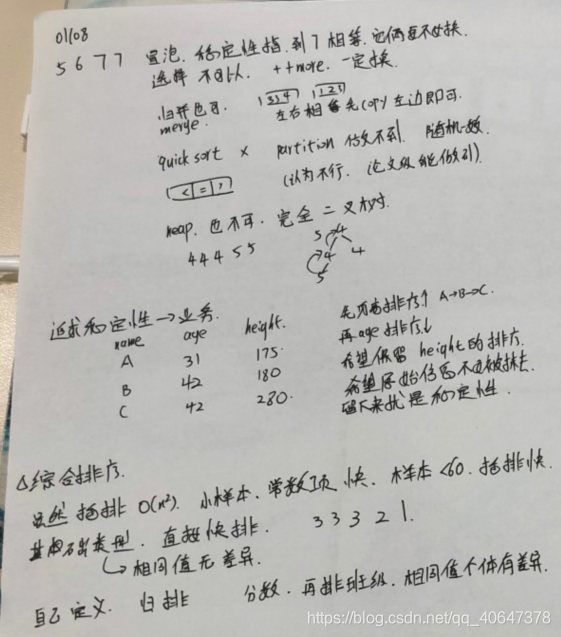 01/08
5 6 7 7 冒泡. 稳定性指. 到7相等. 它俩再不交换.
选择 不可以. ++more. 一定换.
归并也可. 1 3 4 1 2 3
merge. 左右相等先copy左边即可.
quick sort × partition 做不到. 随机数.
< = > (认为不行. 论文级能做到).
heap. 也不可. 完全二叉树.
4 4 4 5 5 5 4 4 4 5
追求稳定性→业务. 先 height 排序↑ A→B→C.
name age height. 再age排序↓
A 31 175. 希望保留 height的排序.
B 42 180 希望原始信息不被抹去.
C 42 280. 留下来就是稳定性.
△综合排序.
虽然 插排 O(n²). 小样本. 常数项 快. 样本<60. 插排快.
基础 类型. 直接快排. 3 3 3 2 1.
↳相同值无差异.
自己定义. 归排 分数. 再排班级. 相同值个体有差异.
https://blog.csdn.net/qq_40647378